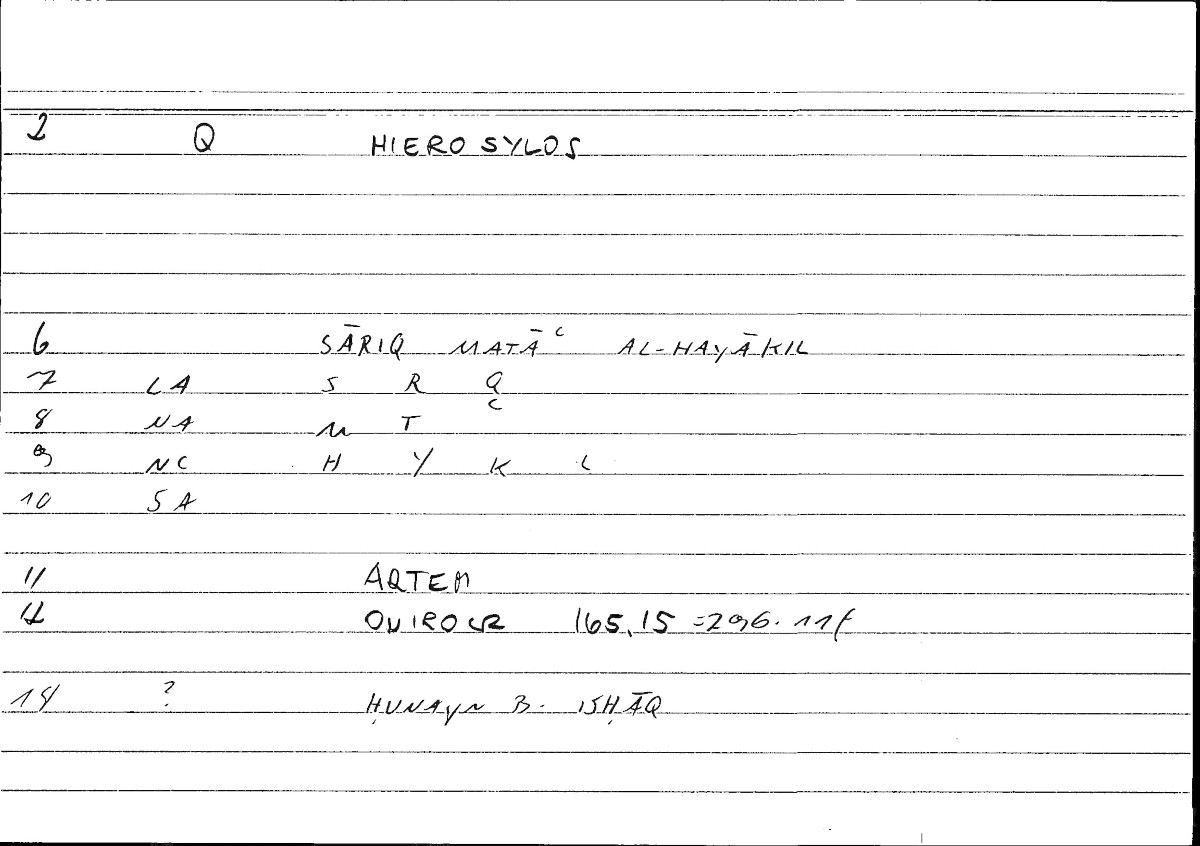 2 Q HIERO SYLOS
6 SĀRIQ MATĀʿ AL-HAYĀKIL
7 LA S R Q
8 NA M T ʿ
9 NC H Y K L
10 SA
11 ARTEM
12 ONIROCR 165,15 =296.11f
14 ? ḤUNAYN B. ISḤĀQ